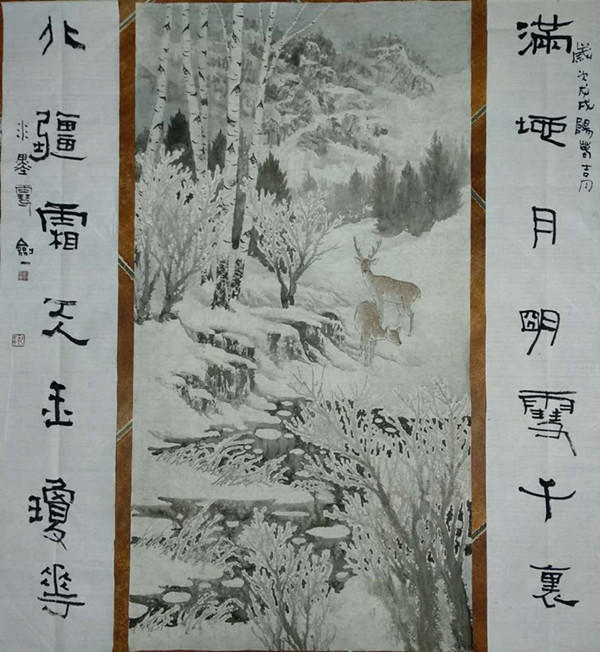 滿地月明雪千裏
歲次戊戌陽春吉
北疆霜天玉瓊華
水墨雪 劍一